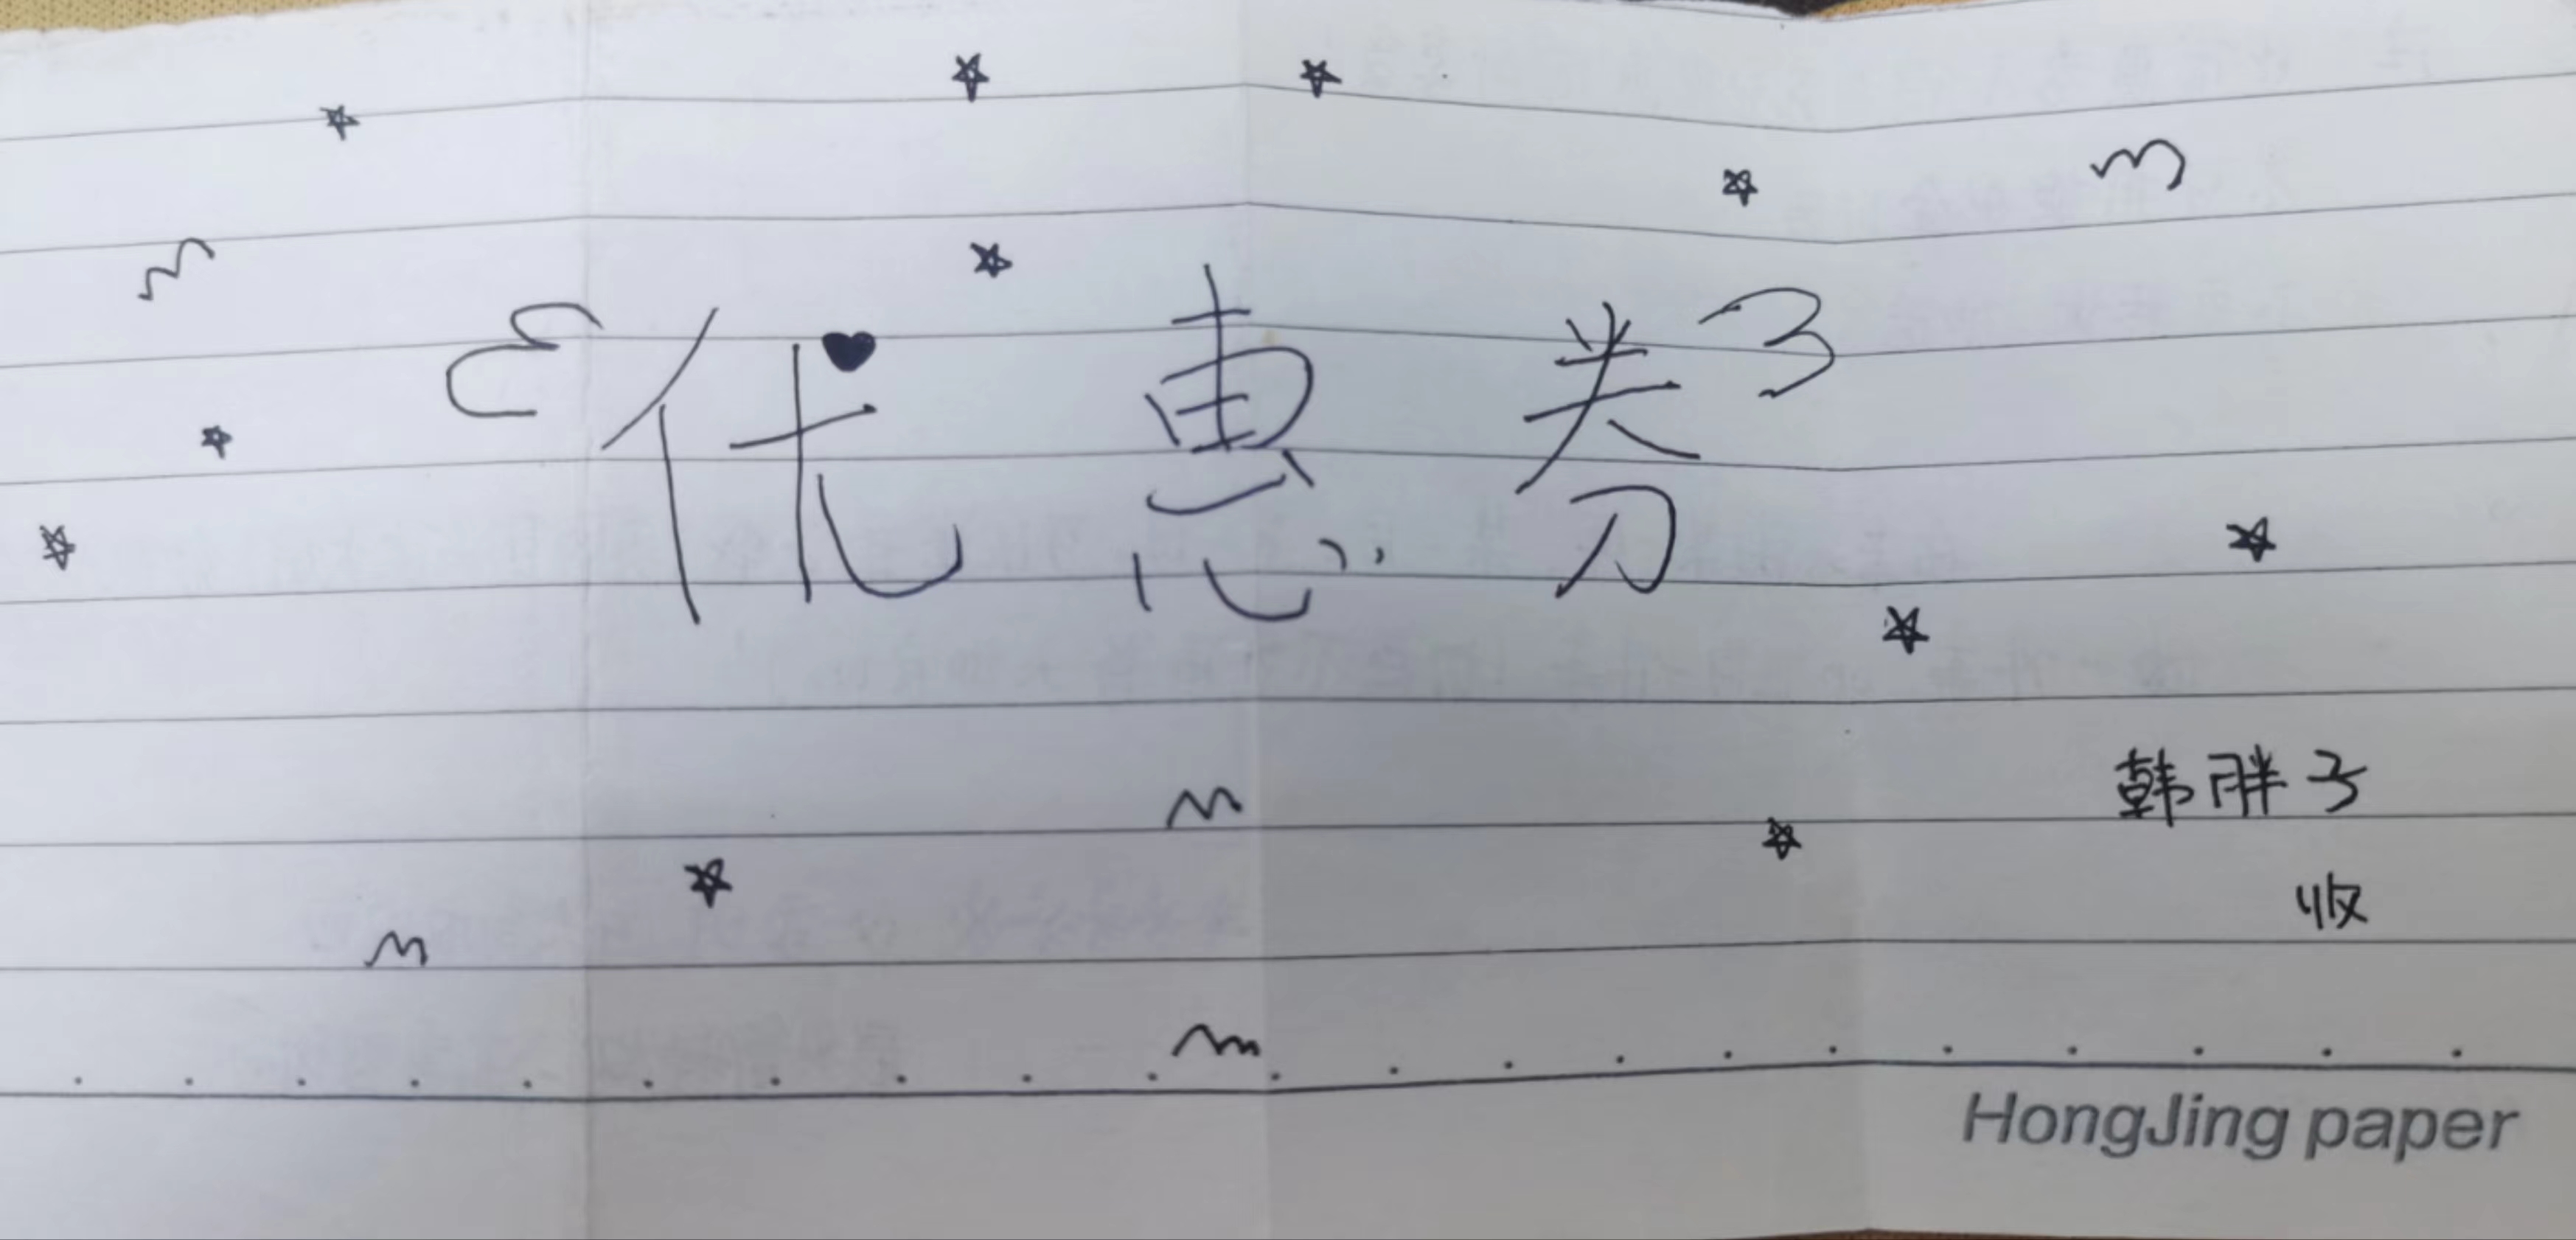 优惠券
韩胖子
收
HongJing paper